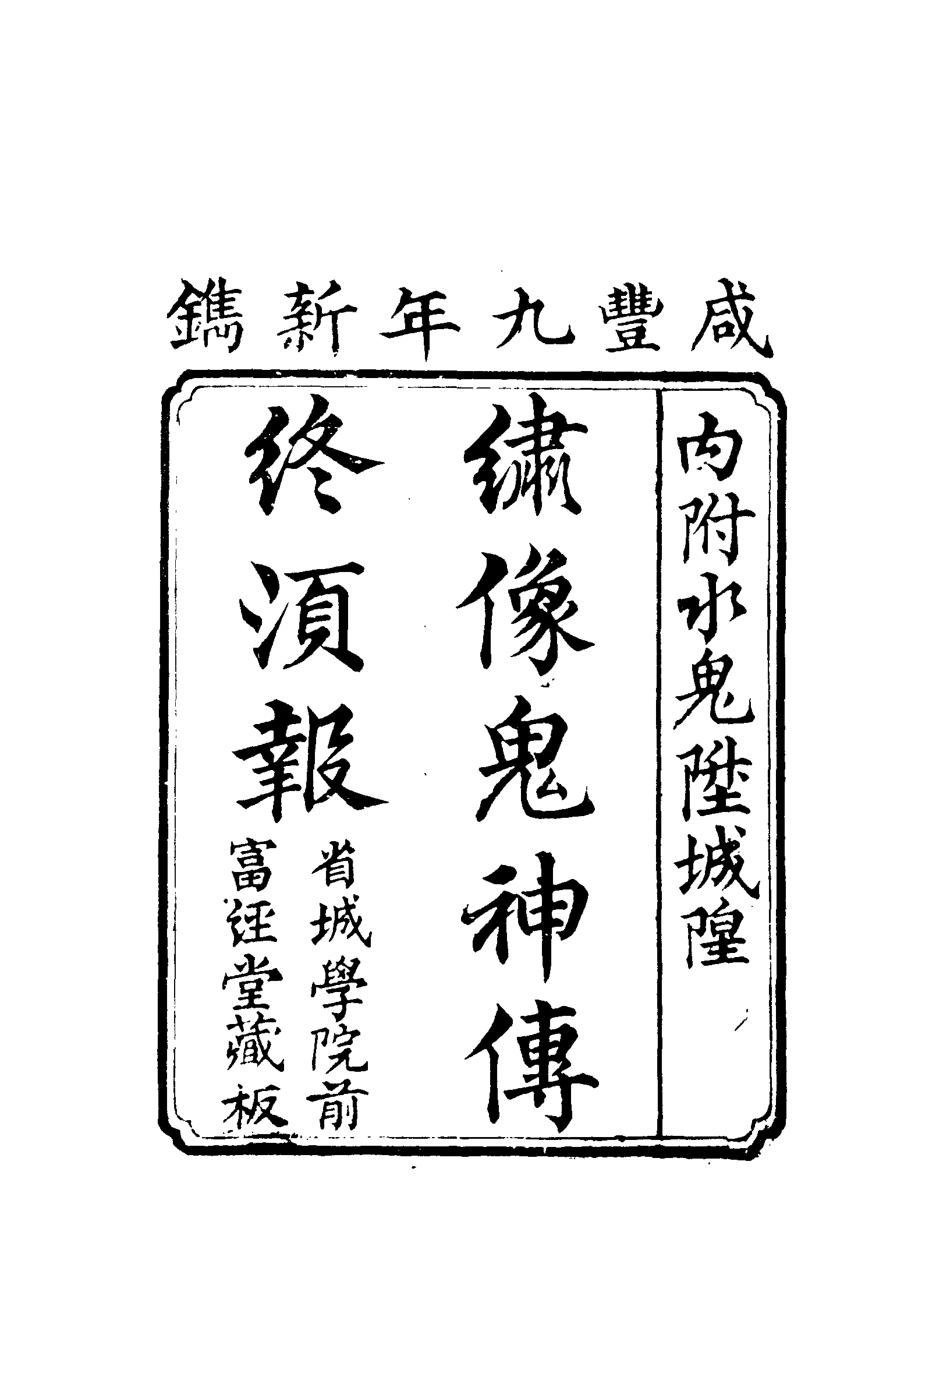 咸豐九年新鐫
内附水鬼陞城隍
繡像鬼神傳
終須報
省城學院前
富經堂藏板